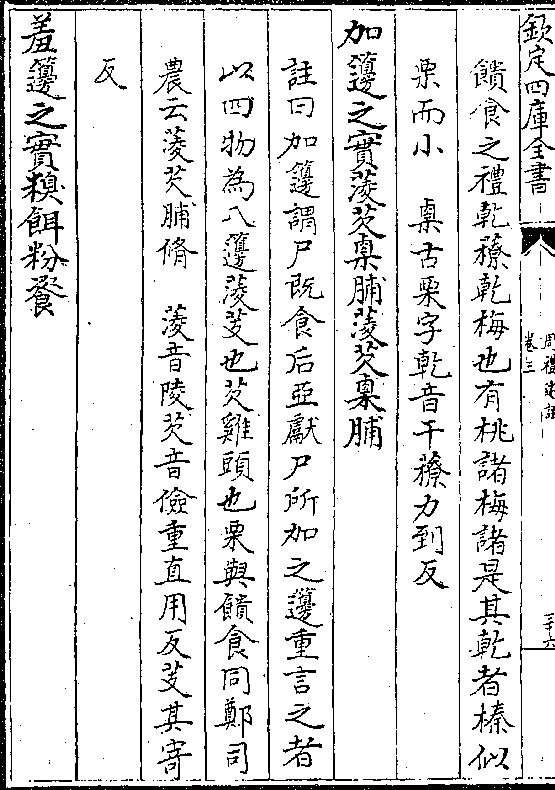 欽定四庫全書
卷三
饋食之禮乾䕩乾梅也有桃諸梅諸是其乾者榛似
栗而小　㮚古栗字乾音干䕩力到反
加籩之實蔆芡㮚脯蔆芡㮚脯
註曰加籩謂尸既食后亞獻尸所加之籩重言之者
以四物為八籩蔆芰也芡雞頭也栗與饋食同鄭司
農云蔆芡脯脩　蔆音陵芡音儉重直用反芰其寄
反
羞籩之實糗餌粉餈